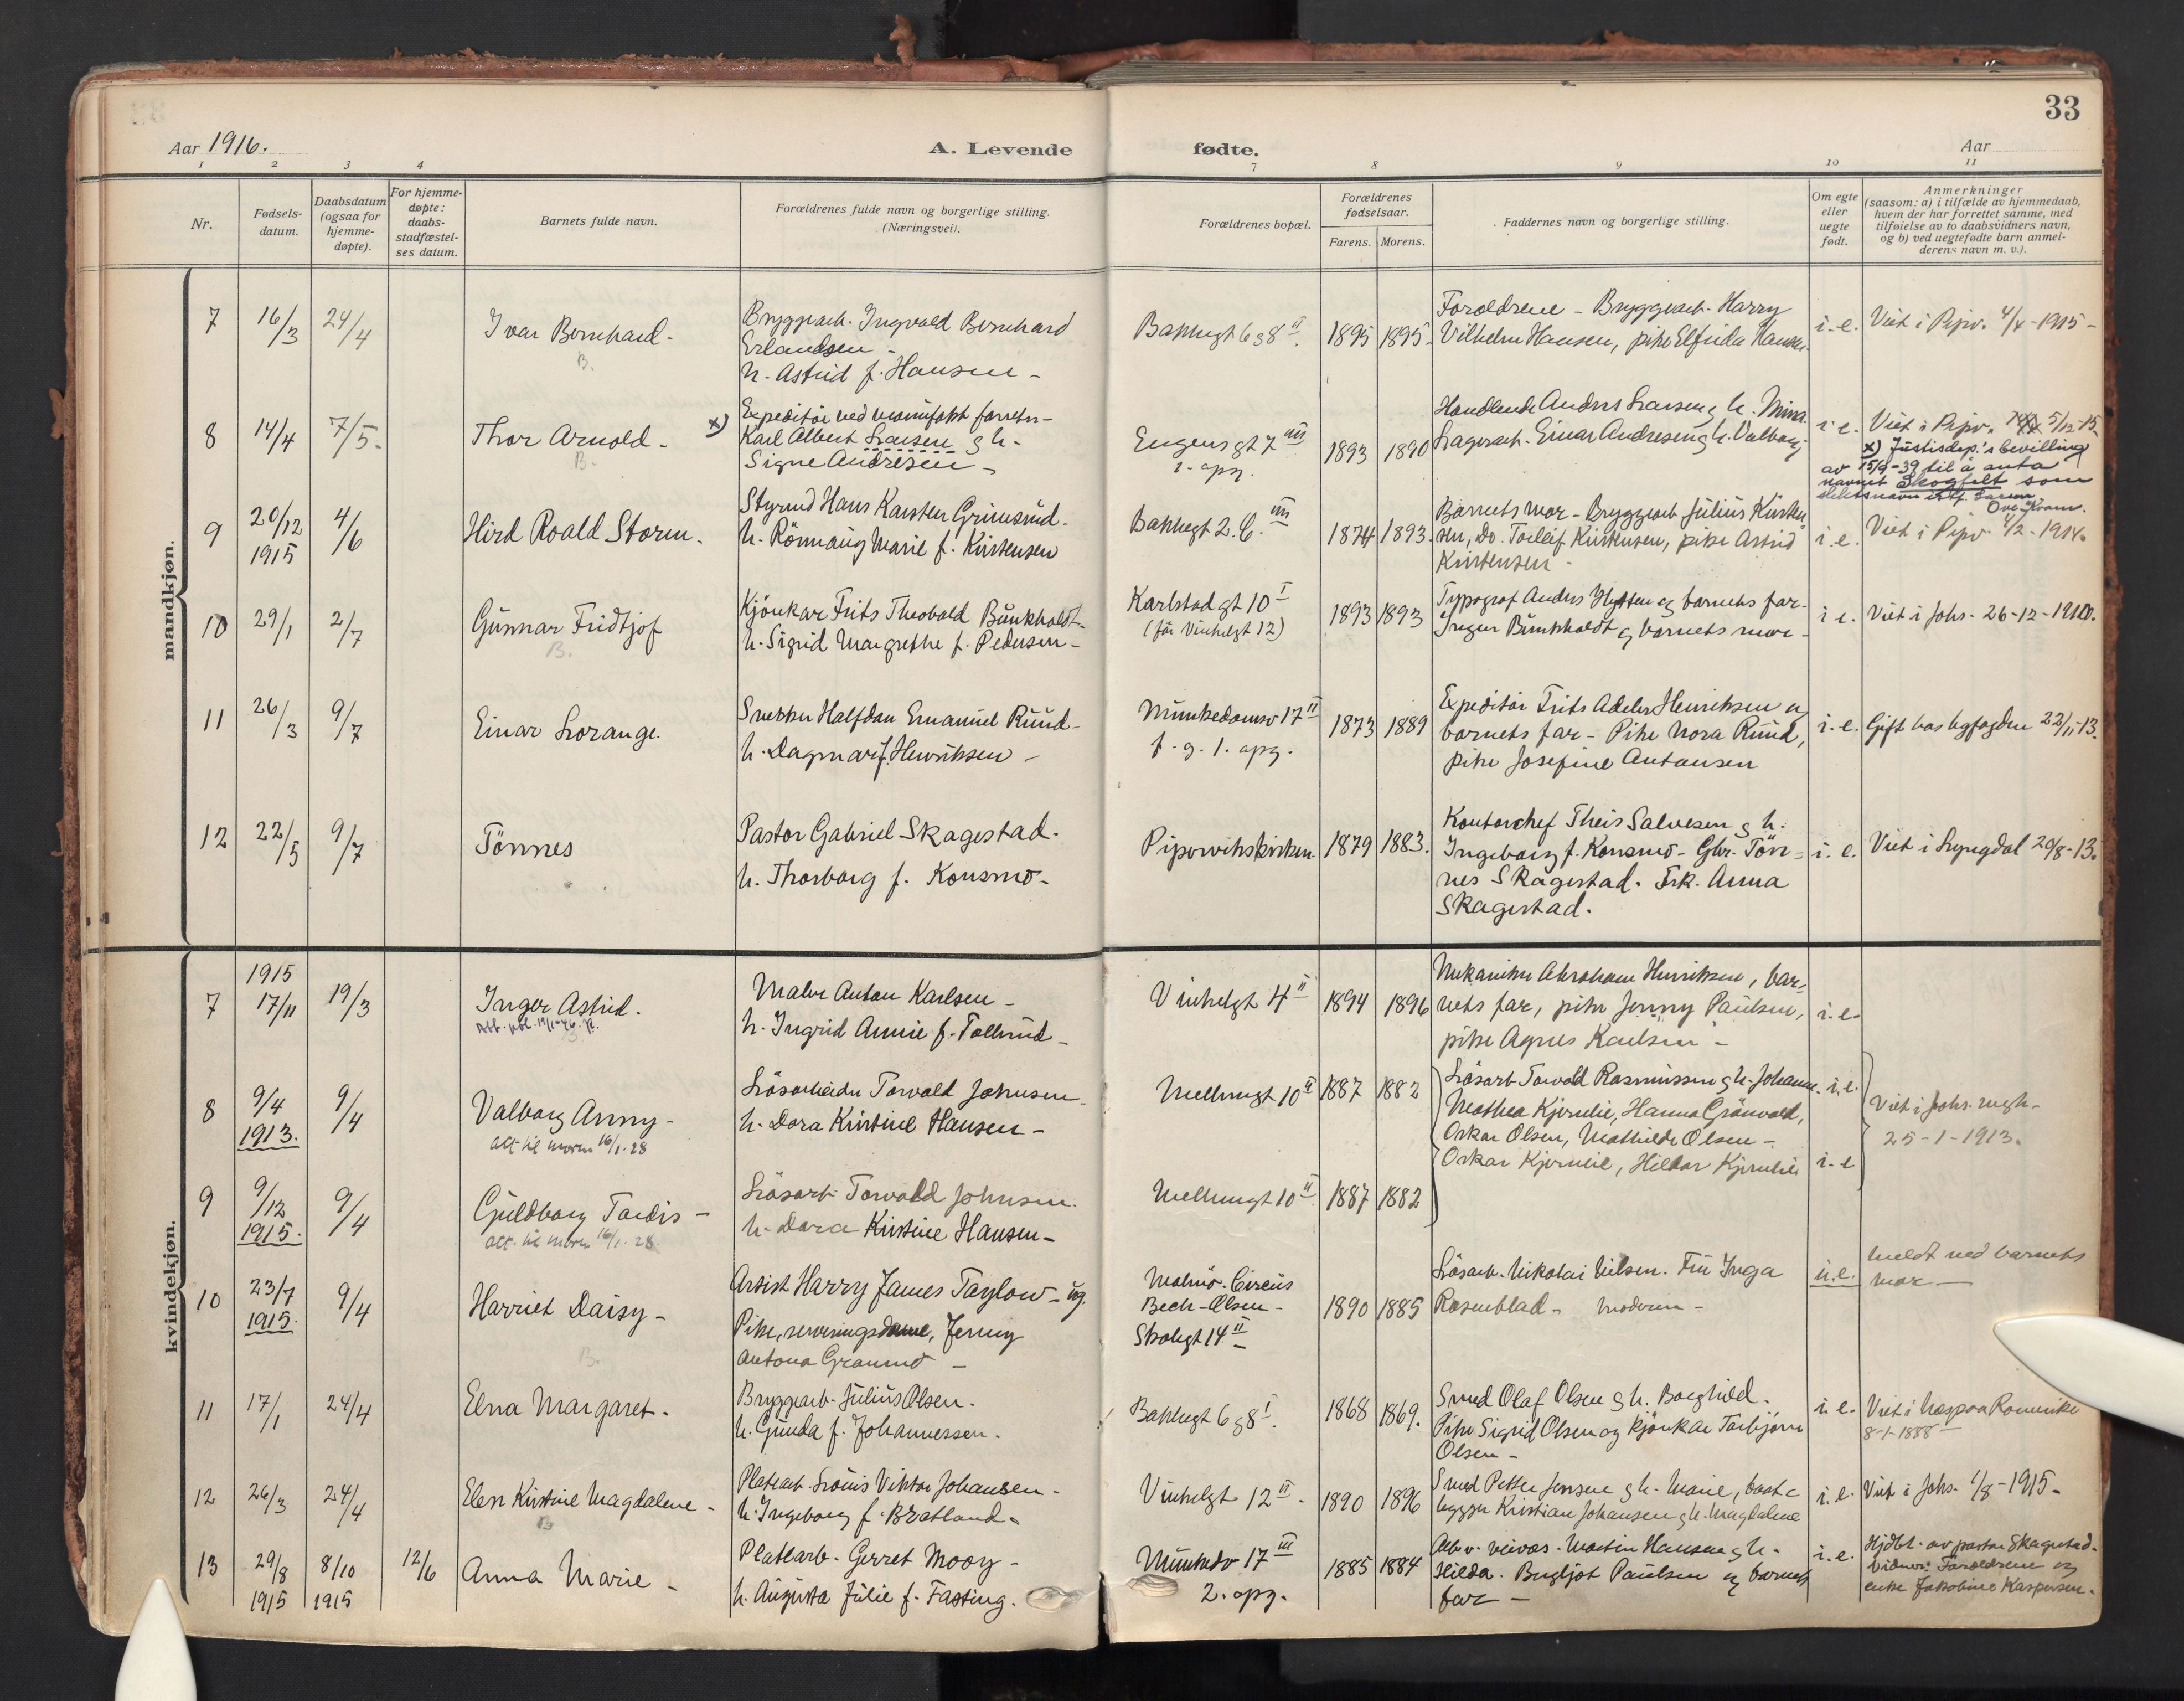 33
Aar 1916.
A. Levende
fødte.
Aar
1 2 3 4 7 8 9 10 11
Nr.
Fødsels-
datum.
Daabsdatum
(ogsaa for
hjemme-
døpte).
For hjemme-
døpte:
daabs-
stadfæstel-
ses datum.
Barnets fulde navn.
Forældrenes fulde navn og borgerlige stilling.
(Næringsvei).
Forældrenes bopæl.
Forældrenes
fødselsaar.
Farens. Morens.
Faddernes navn og borgerlige stilling.
Om egte
eller
uegte
født.
Anmerkninger
(saasom: a) i tilfælde av hjemmedaab,
hvem der har forrettet samme, med
tilføielse av to daabsvidners navn,
og b) ved uegtefødte barn anmel-
derens navn m. v.).
mandkjøn.
7
16/3
24/4
Ivar Bernhard.
B.
Bryggearb. Ingvald Bernhard
Erlandsen -
h. Astrid f. Hansen -
6 g 8 II.
1895 1895.
Forældrene - Bryggearb. Harry
Vilhelm Hansen, pike Elfrida Hansen.
i. e.
Viet i Pipv. 4/4-1915-
8
14/4
7/5.
Thor Arnold -
B.
x)
Expeditør ved manufakt. forretn-
Karl Albert Larsen g h.
Signe Andresen -
Eugens gt 7 IIII
i. opg.
1893 1890
Handlende Anders Larsen g h. Mina.
Lagerarb. Einar Andresen g h. Valborg
i e.
Viet i Pipv. 5/12-15.
x) Justisdep.'s bevilling
av 15/9-39 til å anta
navnet Skogfelt som
slektsnavn
9
20/12
1915
4/6
Hird Roald Storm.
Styrmd Hans Karsten Grimsrud-
h. Rönnaug Marie f. Kristensen
2. C. IIII
1874 1893.
Barnets mor - Bryggearb Julius Kristen
sen, Do. Torleif Kristensen, pike Astrid
Kristensen -
i. e.
Viet i Pipv. 4/2-1914.
10
29/1
2/7
Gunnar Fridtjof
B.
Kjörekar Frits Theobald Bunkholdt-
h. Sigrid Margrethe f. Pedersen -
Karlstad gt 10 I
(før Vinkelgt 12)
1893 1893
Typograf Anders Hytten og barnets far-
Inger Bunkholdt g barnets mor -
i e.
Viet i Johs. 26-12-1910.
11
26/3
9/7
Einar Lorange.
Snekker Halfdan Emanuel Ruud-
h. Dagmar f. Henriksen -
Munkedamsv 17 II
f. g. 1. opg.
1873 1889
Expeditör Frits Adeler Henriksen og
barnets far - Pike Nora Ruud,
pike Josefine Antonsen
i. e.
Gift hos byfogden 22/11-13.
12
22/5
9/7
Tönnes
Pastor Gabriel Skagestad.
h. Thorborg f. Konsmo-
Pipervikskirken.
1879 1883.
Kontorchef Theis Salvesen g h.
Ingeborg f. Konsmo - Gbr. Tön=
nes Skagestad. Frk. Anna
Skagestad.
i. e.
Viet i Lyngdal 20/8-13.
kvindekjøn.
7
1915
17/11
19/3
Inger Astrid.
Maler Anton Karlsen -
h. Ingrid Annie f. Tollerud -
Vinkelgt 4 II
1894 1896
Mekaniker Abraham Henriksen, bar=
nets far, pike Jenny Paulsen,
pike Agnes Karlsen -
i. e.
8
9/4
1913.
9/4
Valborg Anny -
att til moren 16/1-28
Lösarbeider Torvald Johnsen.
h. Dora Kristine Hansen -
Mellemgt 10 II
1887 1882
Lösarb Torvald Rasmussen g h. Johanne.
Mathea Kjernlie, Hanna Grönvold,
Oskar Olsen, Mathilde Olsen -
Oskar Kjernlie, Hildar Kjernlie
i. e.
i. e
Viet i Johs. mgh.
25-1-1913.
9
9/12
1915.
9/4
Guldborg Tordis -
att. til moren 16/1-28
Lösarb. Torvald Johnsen.
h. Dora Kristine Hansen -
Mellemgt 10 II
1887 1882
10
23/7
1915.
9/4
Harriet Daisy -
B.
Artist Harry James Taylow - ug.
Pike, serveringsdame, Jenny
Antona Granmo -
Malmö. Circus
Bech-Olsen -
Skolegt 14 II
1890 1885
Lösarb. Nikolai Nilsen. Fru Inga
Rosenblad - moderen -
u. e.
Meldt ved barnets
mor -
11
17/1
24/4
Elna Margaret.
Bryggearb. Julius Olsen.
h. Gunda f. Johannessen.
6 g 8 I.
1868 1869.
Smed Olaf Olsen g h. Borghild.
Pike Sigrid Olsen og kjörekar Torbjörn
Olsen -
i. e.
Viet i Næs paa Romerike
8-1-1888
12
26/3
24/4
Elen Kristine Magdalene -
B
Platearb. Louis Viktor Johansen -
h. Ingeborg f. Bratland.
Vinkelgt 12 II -
1890 1896
Smed Petter Jensen g h. Marie, baat=
bygger Kristian Johansen g h. Magdalene
i. e.
Viet i Johs. 1/8-1915-
13
29/8
1915
8/10
1915
12/6
Anna Marie -
Platearb. Gerret Mooy -
h. Augusta Julie f. Fasting.
Munkedv 17 III
2. opg.
1885 1884
Arb v. veivæs. Martin Hansen g h.
Hilda. Bergljot Paulsen og barnets
far -
i. e.
Hjdbt. av pastor Skagestad.
Vidner: Forældrene og
enke Jakobine Kaspersen.